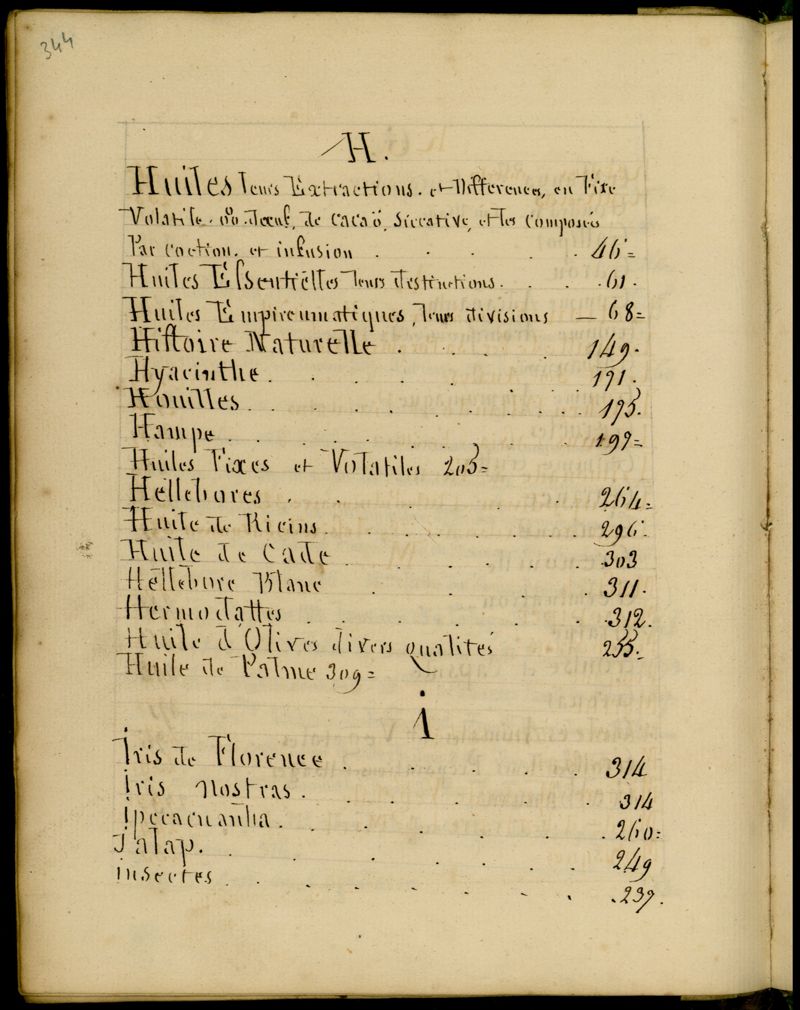 344
H.
Huiles leurs Extractions. et Differences, en Fixe
Volatile. do. d'œuf, de Cacao, Siccative, et les Composés
Par Coction, et infusion . . . . . 46=
Huiles Essentielles leurs destinctions. . . . 61.
Huiles Empireumatiques, leurs divisions — 68=
Histoire Naturelle . . . . 149.
Hyacinthe. . . . . . 171.
Houilles . . . . . . . . . 175.
Hampe . . . . . . . . 197=
Huiles Fixes et Volatiles 205=
Hellebores . . . . . . . 264=
Huile de Ricins. . . . . . . . 296.
Huile de Cade . . . . . . . 303
Hellebore Blanc . . . . . . 311.
Hermodattes . . . . . . . 312.
Huile d'Olives divers qualités 255.
Huile de Palme 309=
i
Iris de Florence . . . . . 314
Iris Nostras . . . . . . 314
ipecacuanha . . . . . . . 260=
Jalap. . . . . . . . 249
insectes . . . . . . . . 237.